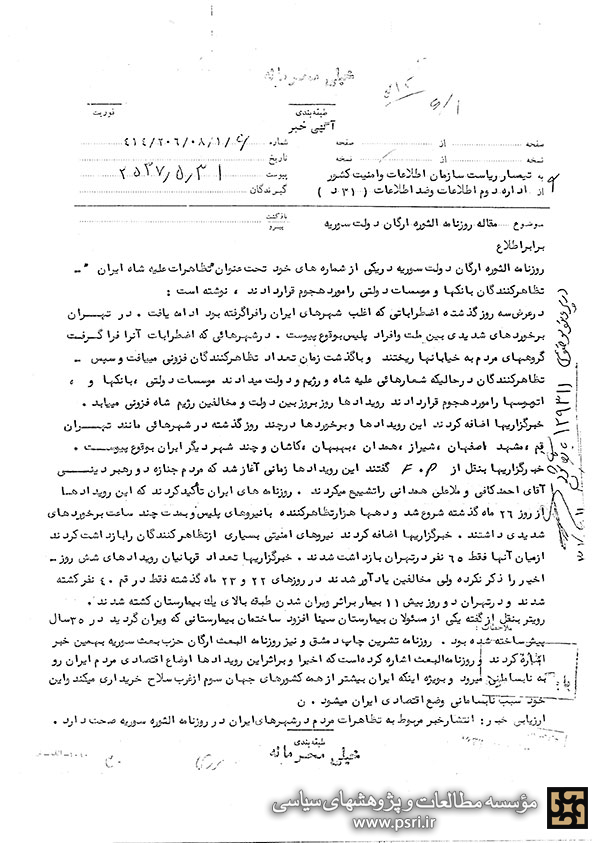 خیلی محرمانه
طبقه‌بندی
فوریت
آگهی خبر
صفحه از صفحه شماره ۴۱۴/۲۰۶/۰۸/۱/
نسخه از نسخه تاریخ
به تیمسار ریاست سازمان اطلاعات و امنیت کشور پیوست ۲۵۳۷/۵/۳۱
از اداره دوم اطلاعات وضد اطلاعات ( ۳۱ د ) گیرندگان
موضوع مقاله روزنامه الثوره ارگان دولت سوریه
بازگشت
پیرو
برابر اطلاع
روزنامه الثوره ارگان دولت سوریه دریکی از شماره های خود تحت عنوان "تظاهرات علیه شاه ایران" -
تظاهرکنندگان بانکها و موسسات دولتی رامورد هجوم قرار دادند ، نوشته است :
درعرض سه روز گذشته اضطراباتی که اغلب شهرهای ایران رافراگرفته بود ادامه یافت . در تهران
برخوردهای شدیدی بین ملت وافراد پلیس بوقوع پیوست . درشهرهائی که اضطرابات آنرا فرا گرفت
گروههای مردم به خیابانها ریختند و باگذشت زمان تعداد تظاهرکنندگان فزونی مییافت و سپس -
تظاهرکنندگان درحالیکه شعارهائی علیه شاه و رژیم و دولت میدادند موسسات دولتی ، بانکها و ه
اتوبسها رامورد هجوم قرار دادند رویدادها روز بروز بین دولت و مخالفین رژیم شاه فزونی میابد .
خبرگزاریها اضافه کردند این رویدادها و برخوردها درچند روز گذشته در شهرهائی مانند تهران
قم ، مشهد اصفهان ، شیراز ، همدان ، بهبهان ، کاشان و چند شهر دیگر ایران بوقوع پیوست .
خبرگزاریها بنقل از F.P گفتند این رویدادها زمانی آغاز شد که مردم جنازه دو رهبر دینی
آقای احمد کافی و ملاعلی همدانی راتشییع میکردند . روزنامه های ایران تأکید کردند که این رویدادها
از روز ۲۶ ماه گذشته شروع شد و دهها هزارتظاهرکننده بانیروهای پلیس و بمدت چند ساعت برخوردهای
شدیدی داشتند . خبرگزاریها اضافه کردند نیروهای امنیتی بسیاری ازتظاهرکنندگان رابازداشت کردند
ازمیان آنها فقط ۶۵ نفر درتهران بازداشت شدند . خبرگزاریها تعداد قربانیان رویدادهای شش روز -
اخیر را ذکر نکرده ولی مخالفین یادآور شدند در روزهای ۲۲ و ۲۳ ماه گذشته فقط در قم ۴۰ نفر کشته
شدند و درتهران دو روز پیش ۱۱ بیمار براثر ویران شدن طبقه بالای یک بیمارستان کشته شدند .
رویتر بنقل از گفته یکی از مسئولان بیمارستان سینا افزود ساختمان بیمارستانی که ویران گردید در ۳۵سال
ملاحظات :
پیش ساخته شده بود . روزنامه تشرین چاپ دمشق و نیز روزنامه البعث ارگان حزب بعث سوریه بهمین خبر
اشاره کردند و روزنامه البعث اشاره کرده است که اخیرا و براثر این رویدادها اوضاع اقتصادی مردم ایران رو
به نابسامانی میرود و بویژه اینکه ایران بیشتر از همه کشورهای جهان سوم ازغرب سلاح خریداری میکند واین
خود سبب نابسامانی وضع اقتصادی ایران میشود . ن
ارزیابی خبر : انتشارخبر مربوط به تظاهرات مردم در شهرهای ایران در روزنامه الثوره سوریه صحت دارد .
طبقه‌بندی
خیلی محرمانه
مؤسسه مطالعات و پژوهشهای سیاسی
www.psri.ir